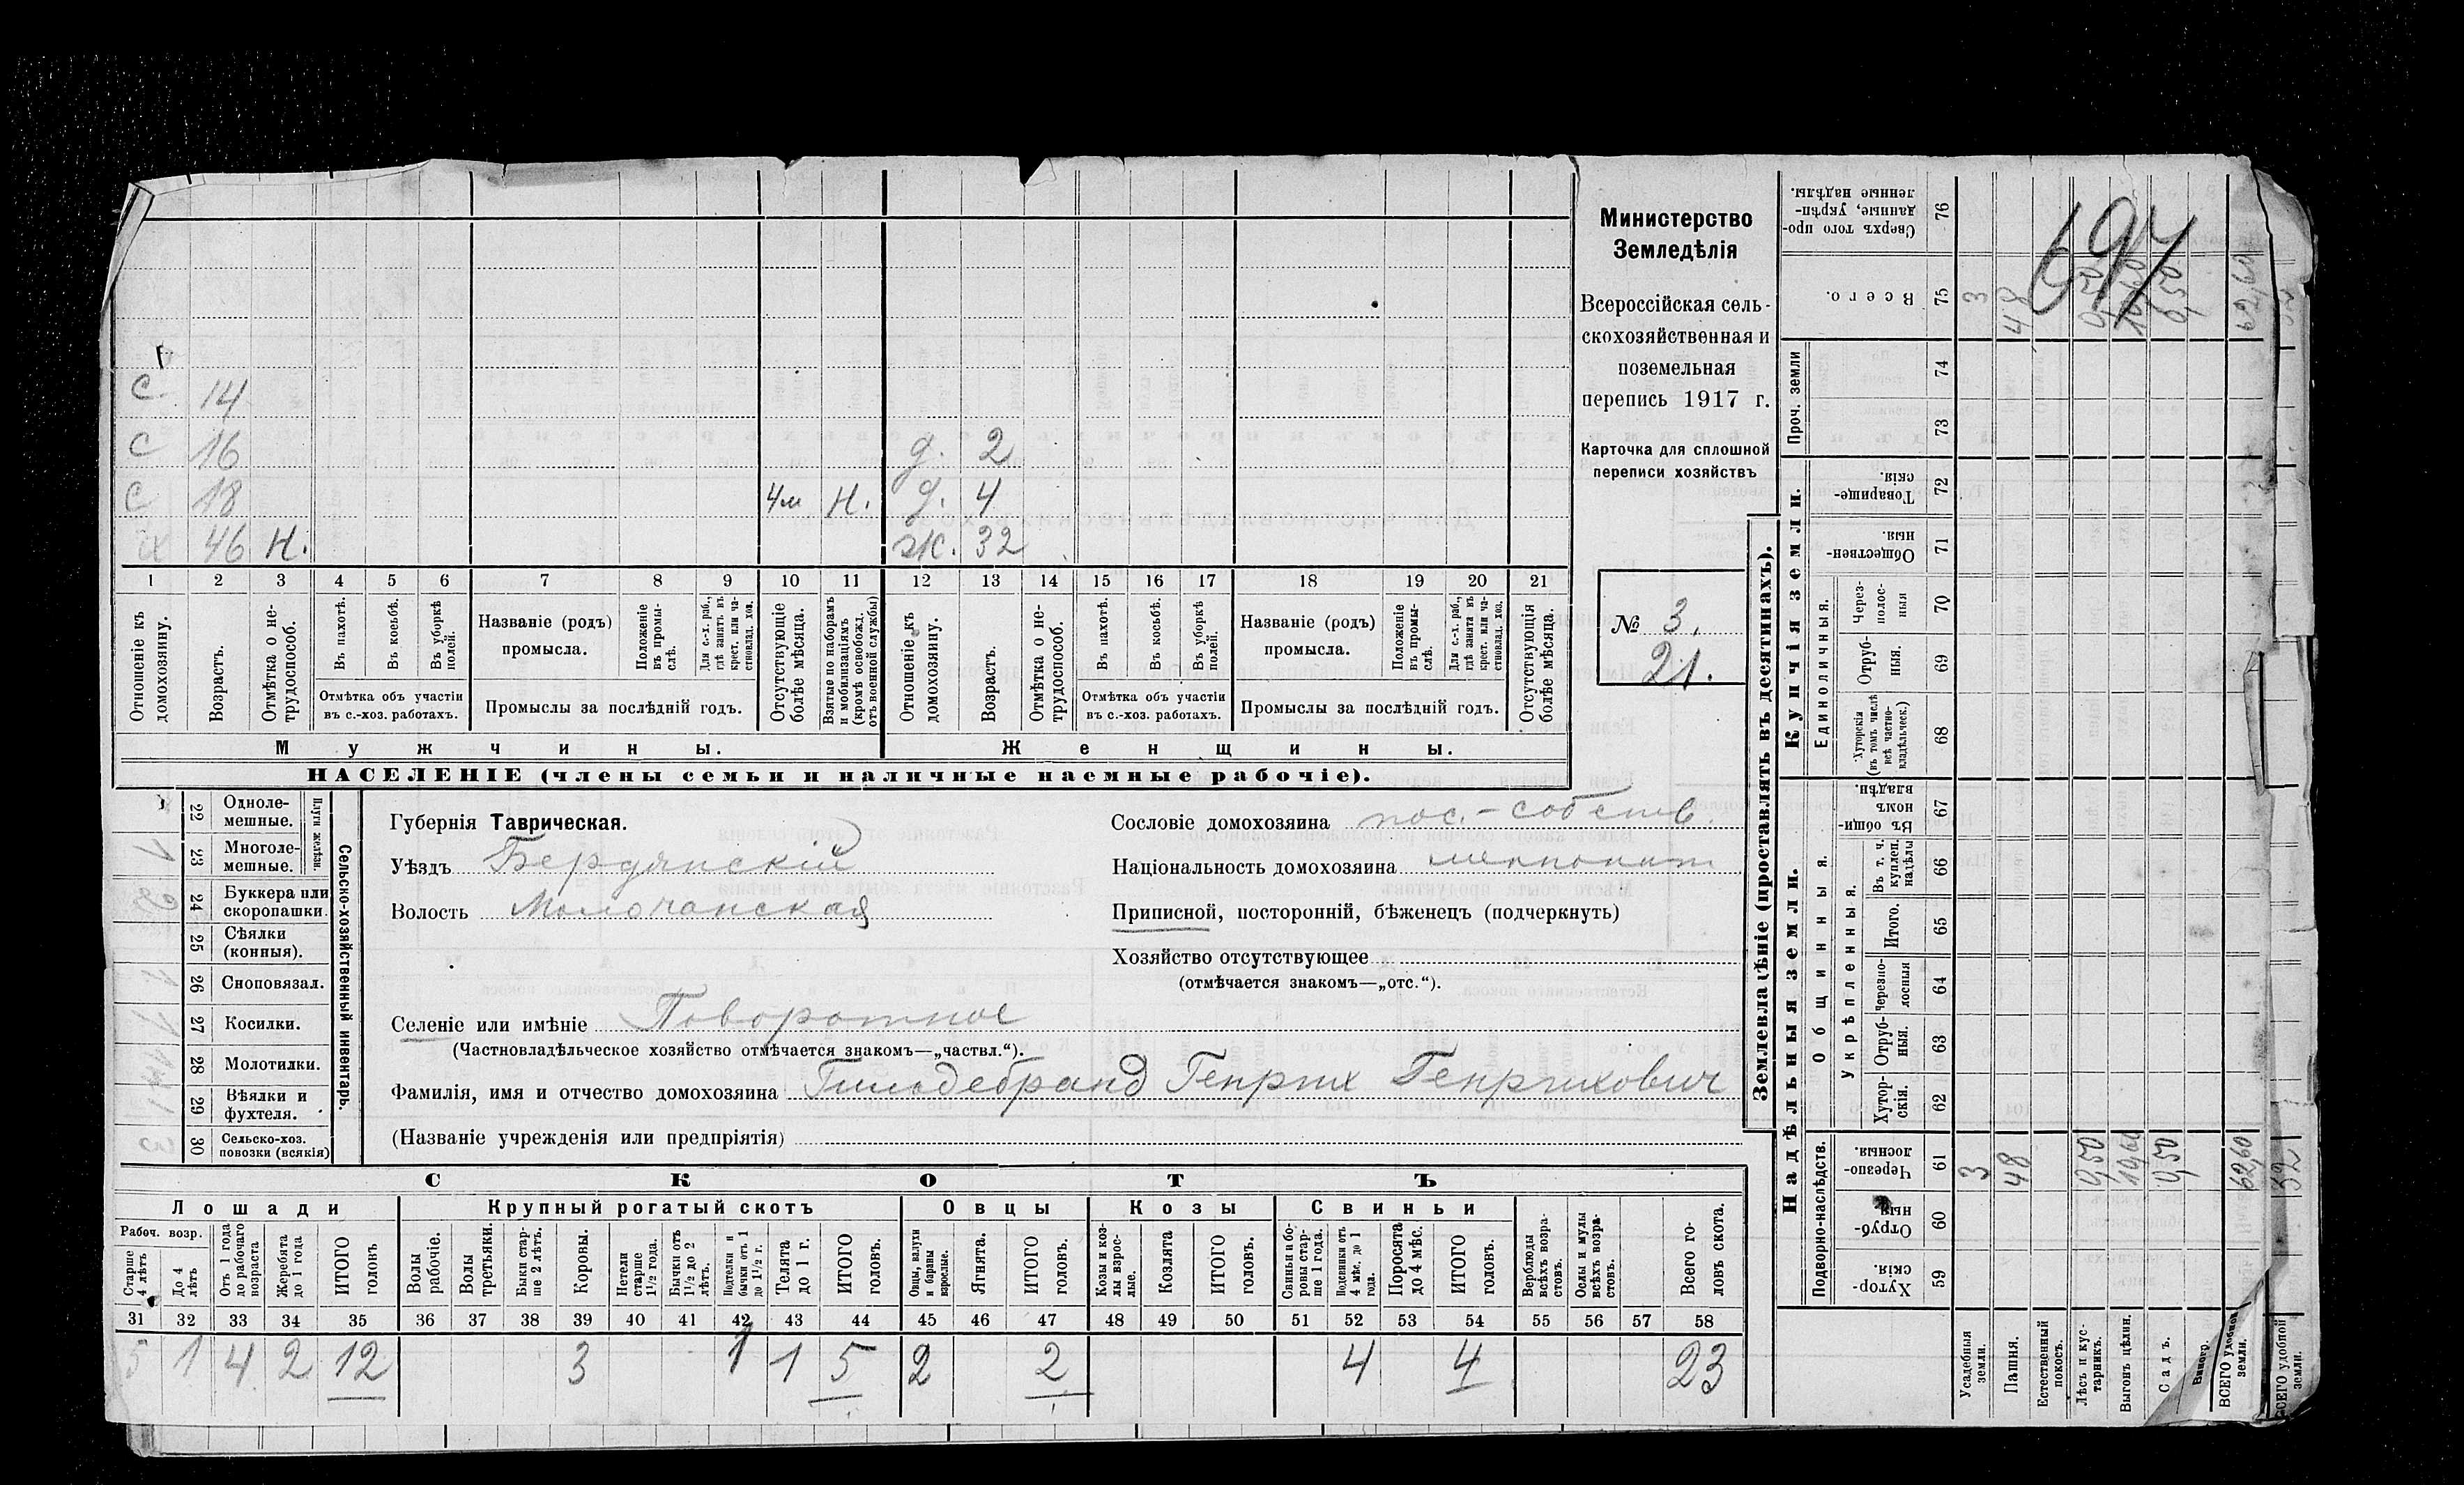 Министерство
Земледѣлія
Всероссійская сель-
скохозяйственная и
поземельная
перепись 1917 г.
Карточка для сплошной
переписи хозяйствъ
№ 3.
21.
694
с 14
с 16 д. 2
с 18 4м Н. д. 4
х 46 Н. ж. 32
1 2 3 4 5 6 7 8 9 10 11 12 13 14 15 16 17 18 19 20 21
Отношеніе къ домохозяину.
Возрастъ.
Отмѣтка о не-трудоспособ.
Въ пахотѣ.
Въ косьбѣ.
Въ уборкѣ полей.
Отмѣтка объ участіи
въ с.-хоз. работахъ.
Названіе (родъ)
промысла.
Положеніе въ промы-слѣ.
Для с.-х. раб., гдѣ занятъ въ крест. или ча-стновлад. хоз.
Промыслы за послѣдній годъ.
Отсутствующіе болѣе мѣсяца.
Взятые по наборамъ и мобилизаціямъ (кромѣ освобожд. отъ военной службы)
Отношеніе къ домохозяину.
Возрастъ.
Отмѣтка о не-трудоспособ.
Въ пахотѣ.
Въ косьбѣ.
Въ уборкѣ полей.
Отмѣтка объ участіи
въ с.-хоз. работахъ.
Названіе (родъ)
промысла.
Положеніе въ промы-слѣ.
Для с.-х. раб., гдѣ занята въ крест. или ча-стновлад. хоз.
Промыслы за послѣдній годъ.
Отсутствующія болѣе мѣсяца.
Мужчины. Женщины.
НАСЕЛЕНІЕ (члены семьи и наличные наемные рабочіе).
Сельско-хозяйственный инвентарь.
Плуги желѣзн.
22 Одноле-мешные.
1 23 Многоле-мешные.
24 Буккера или скоропашки.
25 Сѣялки (конныя).
1 26 Сноповязал.
1 27 Косилки.
28 Молотилки.
1 29 Вѣялки и фухтеля.
3 30 Сельско-хоз. повозки (всякія)
Губернія Таврическая.
Уѣздъ Бердянскій
Волость Молочанская
Селеніе или имѣніе Поворотное
(Частновладѣльческое хозяйство отмѣчается знакомъ—„частвл.“).
Фамилія, имя и отчество домохозяина Гильдебранд Генрих Генрихович
(Названіе учрежденія или предпріятія)
Сословіе домохозяина пос.-собств.
Національность домохозяина меннонит
Приписной, посторонній, бѣженецъ (подчеркнуть)
Хозяйство отсутствующее
(отмѣчается знакомъ—„отс.“).
СКОТЪ
Лошади Крупный рогатый скотъ Овцы Козы Свиньи
Рабоч. возр.
Старше 4 лѣтъ
До 4 лѣтъ
Отъ 1 года до рабочаго возраста
Жеребята до 1 года
ИТОГО головъ
Волы рабочіе.
Волы третьяки.
Быки стар-ше 2 лѣтъ.
Коровы.
Нетели старше 1½ года.
Бычки отъ 1½ до 2 лѣтъ.
Подтелки и бычки отъ 1 до 1½ г.
Телята до 1 г.
ИТОГО головъ.
Овцы, валухи и бараны взрослые.
Ягнята.
ИТОГО головъ.
Козы и коз-лы взрос-лые.
Козлята
ИТОГО головъ.
Свиньи и бо-ровы стар-ше 1 года.
Подсвинки отъ 4 мѣс. до 1 года.
Поросята до 4 мѣс.
ИТОГО головъ.
Верблюды всѣхъ возра-стовъ.
Ослы и мулы всѣхъ возра-стовъ.
Всего го-ловъ скота.
31 32 33 34 35 36 37 38 39 40 41 42 43 44 45 46 47 48 49 50 51 52 53 54 55 56 57 58
5 1 4 2 12 3 1 1 5 2 2 4 4 23
Землевладѣніе (проставлять въ десятинахъ).
Надѣльныя земли. Купчія земли. Проч. земли
Подворно-наслѣдств.
Общинныя.
Укрѣпленныя.
Единоличныя.
Сверхъ того про-данные, укрѣп-ленные надѣлы. 76
Всего. 75 3 48 62,60
74
73
Товарище-скія. 72
Обществен-ныя. 71
Через-полос-ныя 70
Отруб-ныя. 69
Хуторскія (въ томъ числѣ всѣ частно-владѣльческ.) 68
Въ общин-номъ владѣн. 67
Въ т. ч. куплен. надѣлы 66
Итого. 65
Черезпо-лосныя 64
Отруб-ныя. 63
Хутор-скія. 62
Черезпо-лосныя. 61 3 48 62,60
Отруб-ныя 60
Хутор-скія. 59
Усадебныя земли.
Пашня.
Естественный покосъ.
Лѣсъ и кус-тарникъ.
Выгонъ цѣлин.
Садъ.
Виногр.
ВСЕГО удобной земли.
ВСЕГО удобной земли.